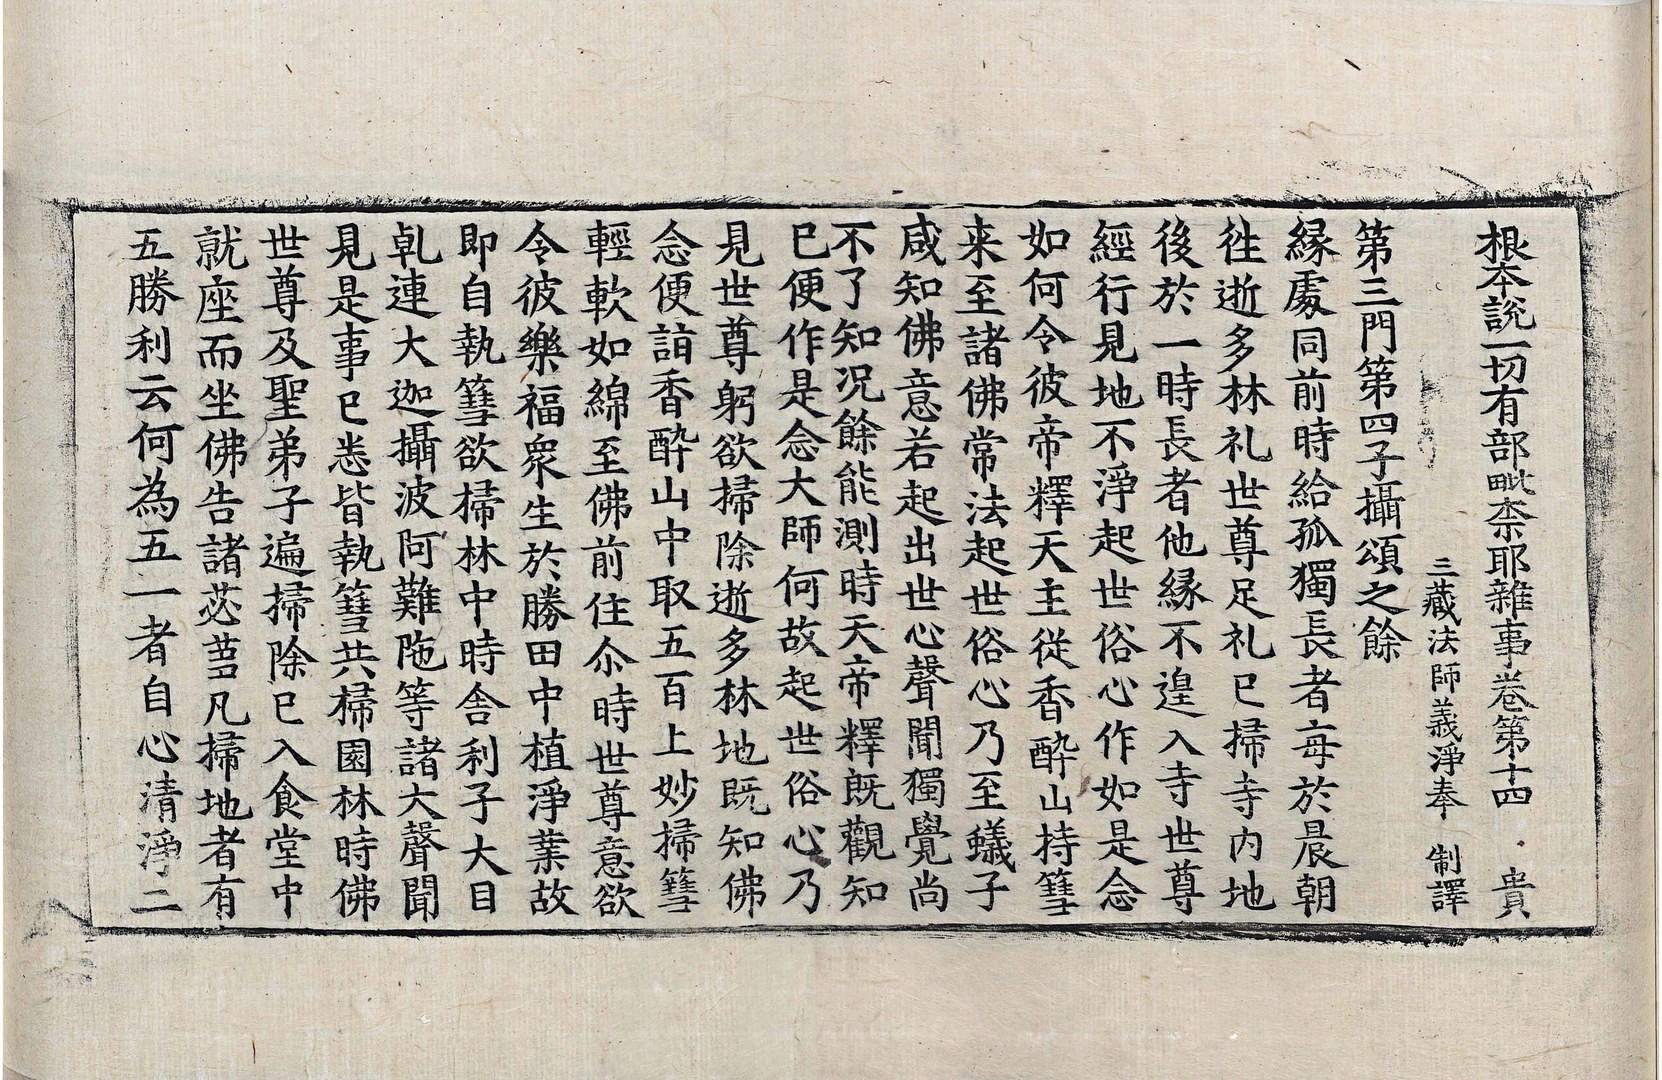 根本說一切有部毗柰耶雜事卷第十四　貴
三藏法師義淨奉　制譯
第三門第四子攝頌之餘
緣處同前時給孤獨長者每於晨朝
徃逝多林礼世尊足礼已掃寺内地
後於一時長者他緣不遑入寺世尊
經行見地不淨起世俗心作如是念
如何令彼帝釋天主從香醉山持篲
来至諸佛常法起世俗心乃至蟻子
咸知佛意若起出世心聲聞獨覺尚
不了知况餘能測時天帝釋既觀知
已便作是念大師何故起世俗心乃
見世尊躬欲掃除逝多林地既知佛
念便詣香醉山中取五百上妙掃篲
輕軟如綿至佛前住尒時世尊意欲
令彼樂福衆生於勝田中植淨業故
即自執篲欲掃林中時舍利子大目
乹連大迦攝波阿難陁等諸大聲聞
見是事已悉皆執篲共掃園林時佛
世尊及聖弟子遍掃除已入食堂中
就座而坐佛告諸苾芻凡掃地者有
五勝利云何為五一者自心清淨二